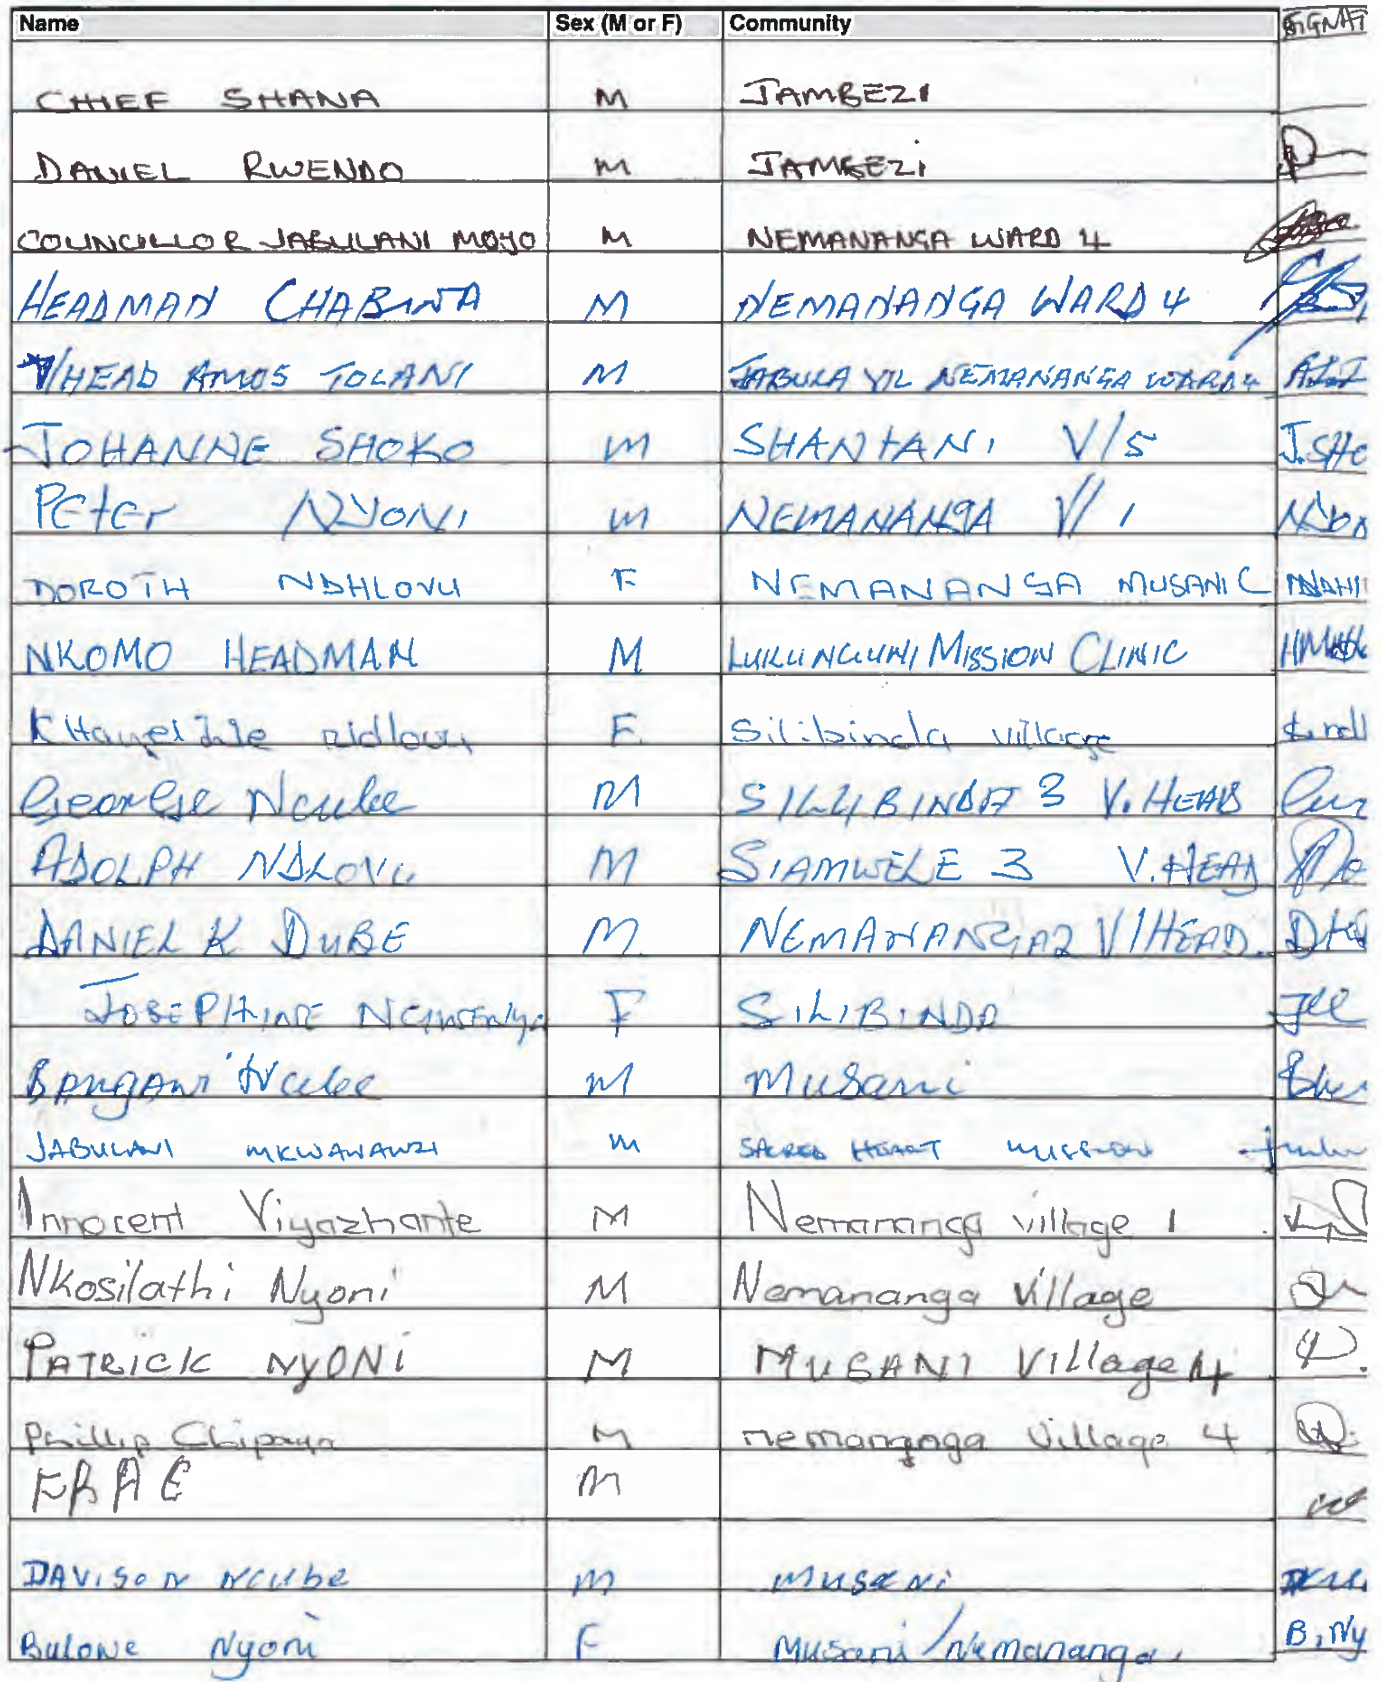 Name Sex (M or F) Community SIGNAT
CHIEF SHANA M JAMBEZI
DANIEL RWENDO M JAMBEZI
COUNCILLOR JABULANI MOYO M NEMANANGA WARD 4
HEADMAN CHABINTA M NEMANANGA WARD 4
V/HEAD AMOS TOLANI M JABULA VIL NEMANANGA WARD 4
JOHANNE SHOKO M SHANTANI V/5 J.SHO
Peter NYONI M NEMANANGA V/1
DOROTH NDHLOVU F NEMANANGA MUSANI C
NKOMO HEADMAN M LUKUNGUNI MISSION CLINIC
F Silibinda village
George Ncube M SILLIBINDA 3 V.HEAD
ADOLPH NDLOVU M SIAMWELE 3 V.HEAD
DANIEL K DUBE M NEMANANGA2 V/HEAD.
JOSEPHINE NGWENYA F SILIBINDA
BANGANI Ncube M Musani
JABULANI MKWANANZI M SACRED HEART MISSION
Innocent Viyazhante M Nemananga village 1
Nkosilathi Nyoni M Nemananga Village
PATRICK NYONI M MUSANI Village 4
Phillip Chipaya M nemananga Village 4
M
DAVISON Ncube M musani
Bulone Nyoni F Musani/Nemananga B.Ny